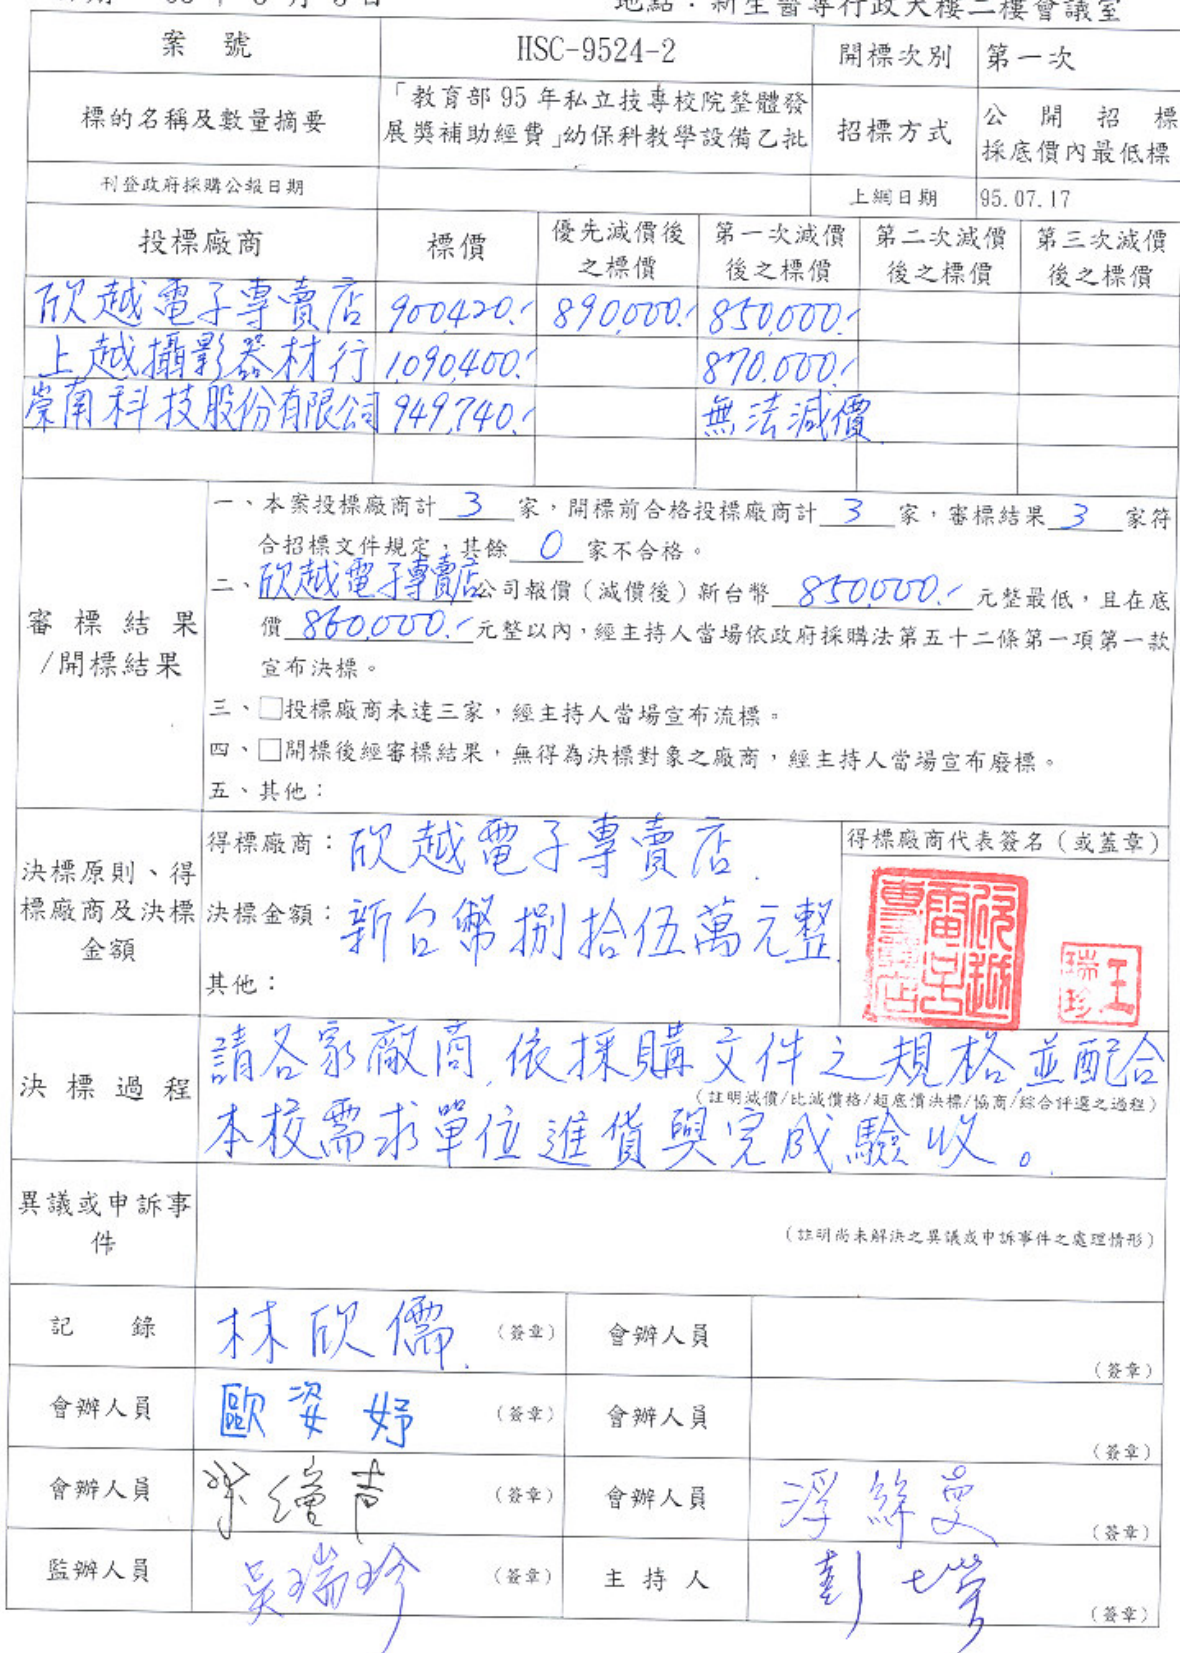 地點：新生醫專行政大樓二樓會議室
案號 HSC-9524-2 開標次別 第一次
標的名稱及數量摘要 「教育部 95 年私立技專校院整體發
展獎補助經費」幼保科教學設備乙批 招標方式 公開招標
採底價內最低標
刊登政府採購公報日期 上網日期 95.07.17
投標廠商 標價 優先減價後
之標價 第一次減價
後之標價 第二次減價
後之標價 第三次減價
後之標價
欣越電子專賣店 900,420.- 890,000.- 850,000.-
上越攝影器材行 1,090,400.- 870,000.-
崇南科技股份有限公司 949,740.- 無法減價
審標結果
/開標結果
一、本案投標廠商計 3 家，開標前合格投標廠商計 3 家，審標結果 3 家符
合招標文件規定，其餘 0 家不合格。
二、欣越電子專賣店公司報價（減價後）新台幣 850,000.- 元整最低，且在底
價 860,000.- 元整以內，經主持人當場依政府採購法第五十二條第一項第一款
宣布決標。
三、□投標廠商未達三家，經主持人當場宣布流標。
四、□開標後經審標結果，無得為決標對象之廠商，經主持人當場宣布廢標。
五、其他：
決標原則、得
標廠商及決標
金額
得標廠商：欣越電子專賣店
決標金額：新台幣捌拾伍萬元整
其他：
得標廠商代表簽名（或蓋章）
欣越電子專賣店
王瑞珍
決標過程
請各家廠商，依採購文件之規格，並配合
（註明減價/比減價格/超底價決標/協商/綜合評選之過程）
本校需求單位進貨與完成驗收。
異議或申訴事
件
（註明尚未解決之異議或申訴事件之處理情形）
記錄 林欣儒（簽章） 會辦人員 （簽章）
會辦人員 歐姿妤（簽章） 會辦人員 （簽章）
會辦人員 （簽章） 會辦人員 （簽章）
監辦人員 吳瑞珍（簽章） 主持人 （簽章）